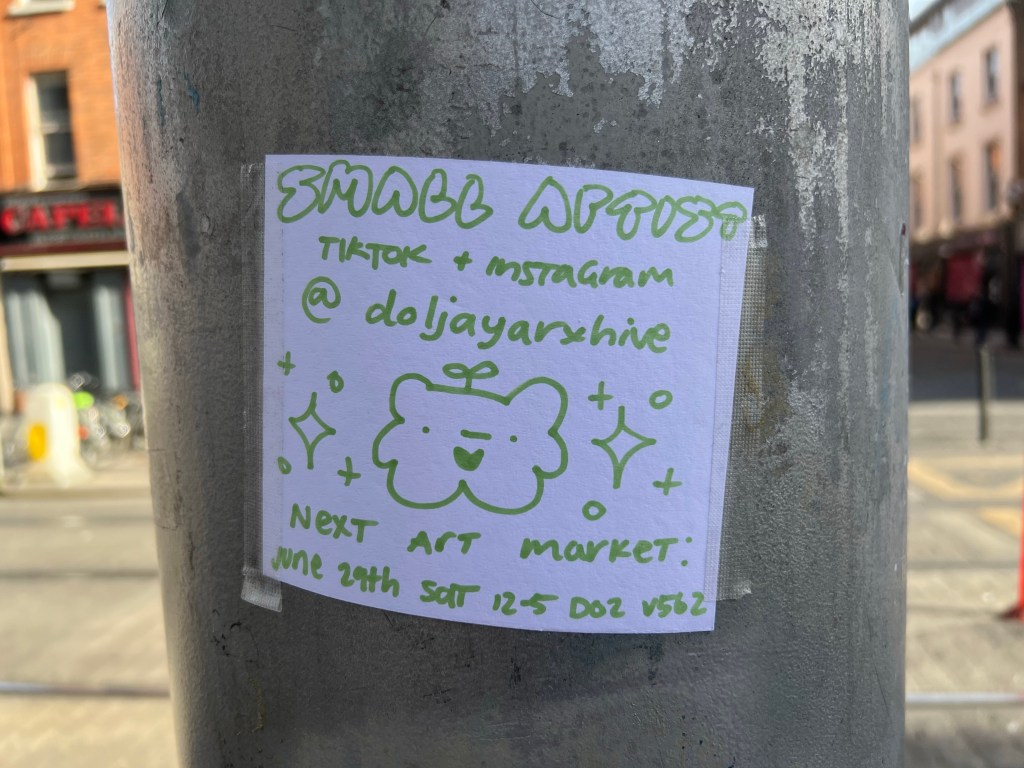 SMALL ARTIST
TIKTOK + INSTAGRAM
@ doljayarxhive
NEXT ART MARKET:
JUNE 29th SAT 12-5 D02 V562
CAFE